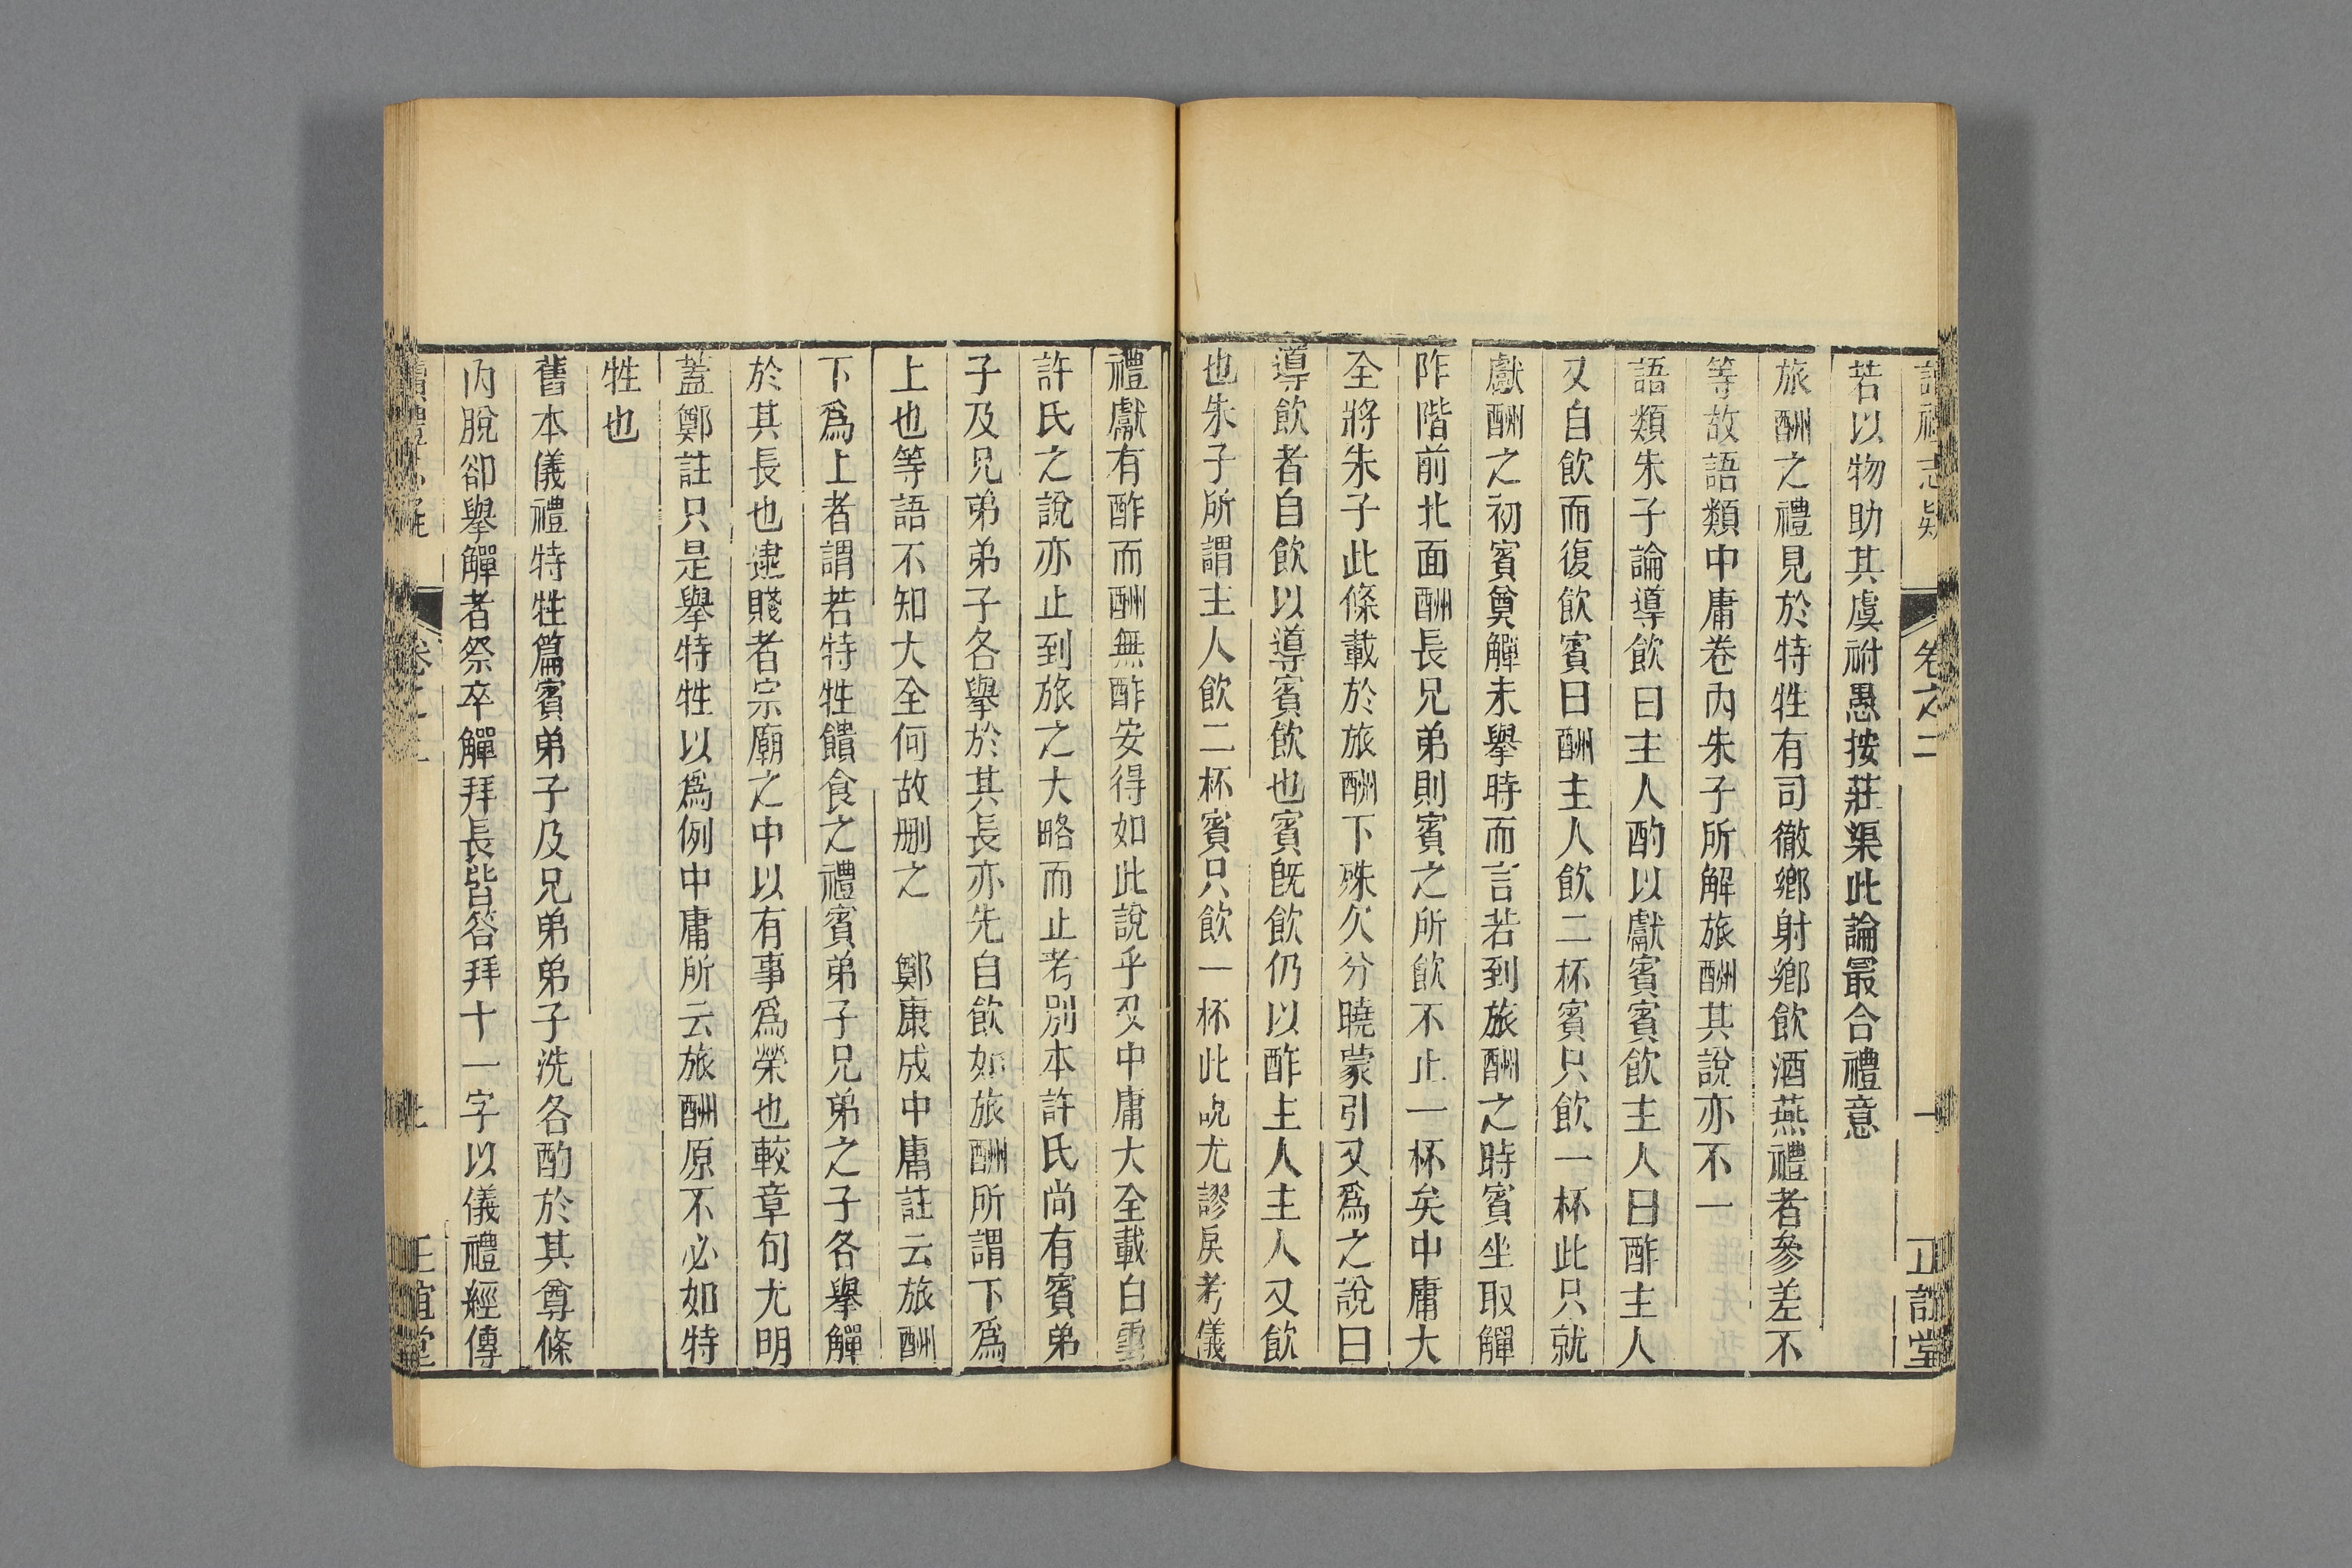 讀禮志疑 卷之二 正誼堂
若以物助其虞祔愚按莊渠此論最合禮意
旅酬之禮見於特牲有司徹鄉射鄉飲酒燕禮者參差不
等故語類中庸卷內朱子所解旅酬其說亦不一
語類朱子論導飲曰主人酌以獻賓賓飲主人曰酢主人
又自飲而復飲賓曰酬主人飲二杯賓只飲一杯此只就
獻酬之初賓奠觶未舉時而言若到旅酬之時賓坐取觶
阼階前北面酬長兄弟則賓之所飲不止一杯矣中庸大
全將朱子此條載於旅酬下殊欠分曉蒙引又為之說曰
導飲者自飲以導賓飲也賓既飲仍以酢主人主人又飲
也朱子所謂主人飲二杯賓只飲一杯此說尤謬戾考儀
禮獻有酢而酬無酢安得如此說乎又中庸大全載白雲
許氏之說亦止到旅之大略而止考別本許氏尚有賓弟
子及兄弟弟子各舉於其長亦先自飲如旅酬所謂下為
上也等語不知大全何故刪之　鄭康成中庸註云旅酬
下為上者謂若特牲饋食之禮賓弟子兄弟之子各舉觶
於其長也逮賤者宗廟之中以有事為榮也較章句尤明
蓋鄭註只是舉特牲以為例中庸所云旅酬原不必如特
牲也
舊本儀禮特牲篇賓弟子及兄弟弟子洗各酌於其尊條
內脫卻舉觶者祭卒觶拜長皆答拜十一字以儀禮經傳
讀禮志疑 卷之二 正誼堂